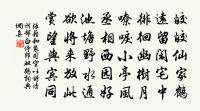 皎皎仙家鶴
遠留閑宅中
徘徊幽樹月
嘹唳小亭風
丞相西園好
池塘野水通
欲將來放此
賞望與賓同
張籍和裴司空以詩請
刑部白侍郎雙鶴詞典
網